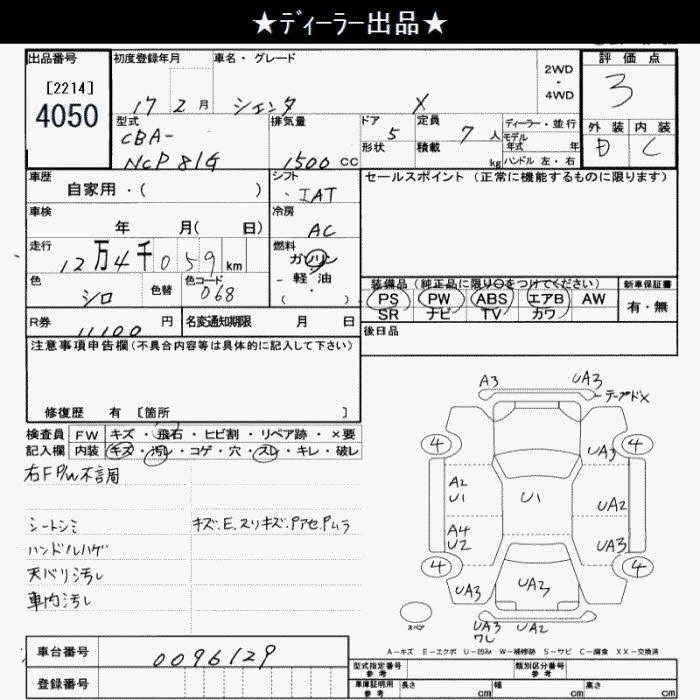 ★ディーラー出品★
出品番号 初度登録年月 車名・グレード 2WD・4WD 評価点
[2214]
4050
17 2月 シエンタ X 3
型式 排気量 ドア 定員 ディーラー・並行 外装 内装
CBA-
NCP81G 1500 CC 5 7人 モデル年式 年 D C
形状 積載 kg ハンドル 左・右
車歴 シフト セールスポイント(正常に機能するものに限ります)
自家用・( ) IAT
車検 冷房
年 月( 日) AC
走行 燃料
12万4千059km ガソリン
色 色替 色コード ・軽油
シロ 068 ( ・ )
装備品(純正品に限り○をつけてください) 新車保証書
PS PW ABS エアB AW 有・無
SR ナビ TV カワ
R券 11100円 名変通知期限 月 日
後日品
注意事項申告欄(不具合内容等は具体的に記入して下さい)
修復歴 有 [箇所 ]
検査員 FW キズ・飛石・ヒビ割・リペア跡・×要
記入欄 内装 キズ・汚レ・コゲ・穴・スレ・キレ・破レ
右F P/W不調
シートシミ キズ.E.スリキズ.Pアセ.Pムラ
ハンドルハゲ
天バリ汚し
車内汚し
A3 UA3
テープドX
4 4
UA3
A2
U1 U1 UA2
A4
U2 UA3
4 4
UA3 UA3
スペア UA3 UA2
ワレ
A-キズ E-エクボ U-凹み W-補修跡 S-サビ C-腐食 XX-交換済
車台番号 0096129
登録番号
型式指定番号 参考 類別区分番号 参考
車庫証明用 参考 長さ cm 幅 cm 高さ cm